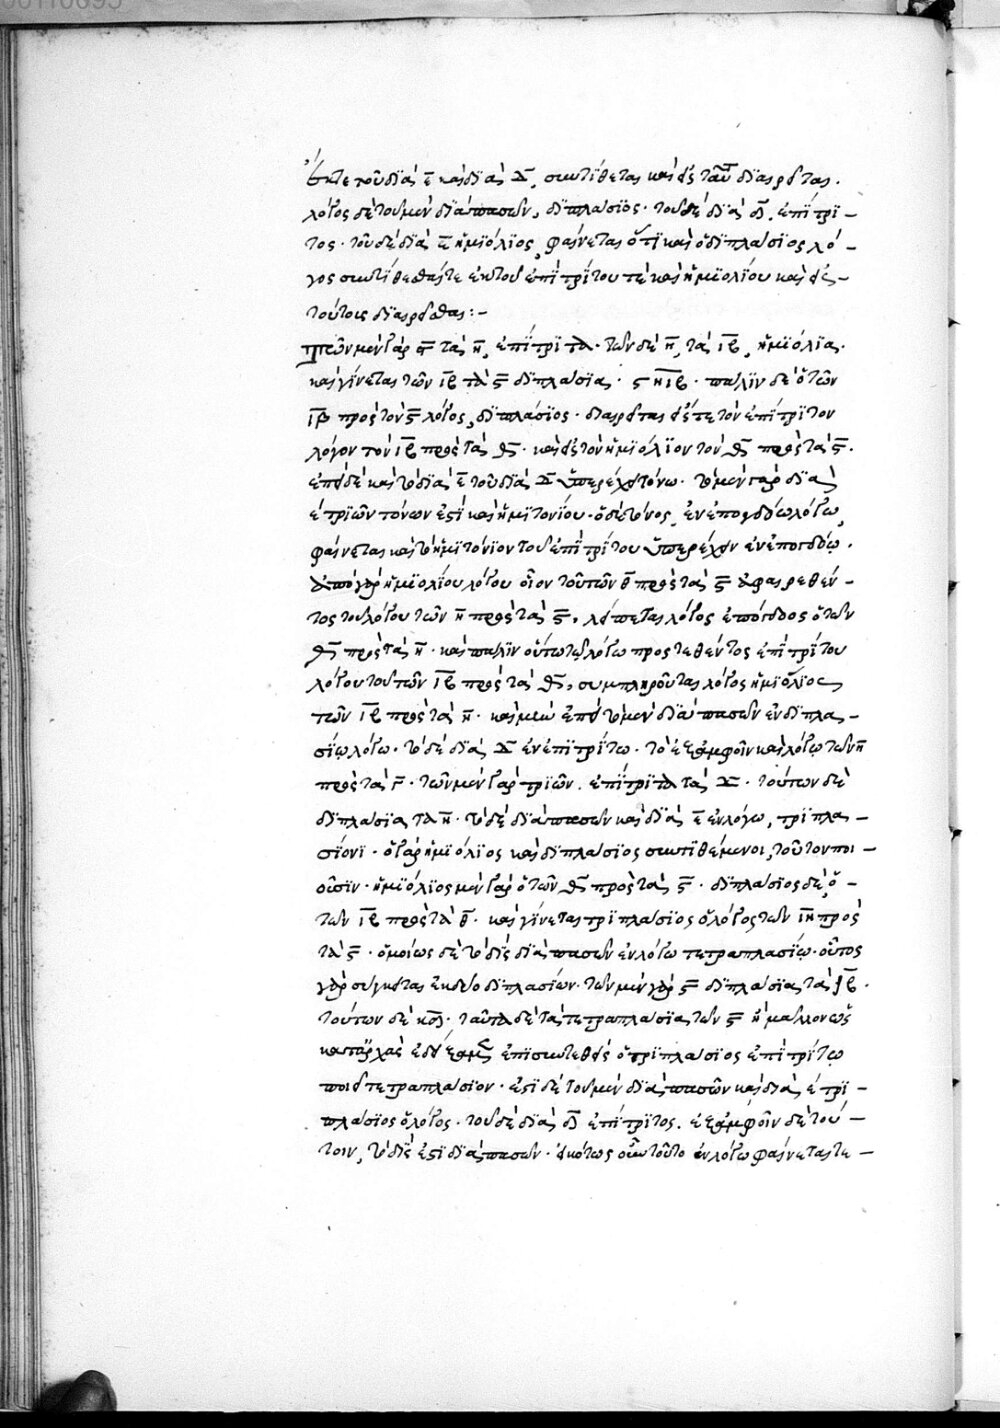 ἔκ τε τοῦ διὰ ε̄ καὶ διὰ δ̄, συντίθεται καὶ εἰς ταῦτα διαιρεῖται.
λόγος δὲ τοῦ μὲν διαπασῶν, διπλάσιος· τοῦ δὲ διὰ δ̄, ἐπίτρι-
τος· τοῦ δὲ διὰ ε̄ ἡμιόλιος, φαίνεται ὅτι καὶ ὁ διπλάσιος λό-
γος συντίθεταί τε ἐκ τοῦ ἐπιτρίτου τὲ καὶ ἡμιολίου καὶ εἰς
τούτοις διαιρεῖται:-
τῶν μὲν γὰρ ϛ̄ τὰ η̄, ἐπίτριτα· τῶν δὲ η̄, τὰ ιβ̄, ἡμιόλια.
καὶ γίνεται τῶν ιβ̄ τὰ ϛ̄ διπλάσια· ϛ η̄ ιβ̄· πάλιν δὲ ὁ τῶν
ιβ̄ πρὸς τὸν ϛ̄ λόγος, διπλάσιος· διαιρεῖται εἴς τε τὸν ἐπίτριτον
λόγον τὸν ιβ̄ πρὸς τὰ θ̄· καὶ εἰς τὸν ἡμιόλιον τὸν θ̄ πρὸς τὰ ϛ̄.
ἐπεὶ δὲ καὶ τὸ διὰ ε̄ τοῦ διὰ δ̄ ὑπερέχει τόνω· τὸ μὲν γὰρ διὰ
ε τριῶν τόνων ἐστὶ καὶ ἡμιτονίου· ὁ δὲ τόνος ἐν ἐπογδόω λόγω,
φαίνεται καὶ τὸ ἡμιτόνιον τοῦ ἐπιτρίτου ὑπερέχειν ἐν ἐπογδόῳ.
ἀπὸ γὰρ ἡμιολίου λόγου οἷον τοῦ τῶν θ̄ πρὸς τὰ ϛ̄ ἀφαιρεθέν-
τος τοῦ λόγου τῶν η̄ πρὸς τὰ ϛ̄, λείπεται λόγος ἐπόγδοος ὁ τῶν
θ̄ πρὸς τὰ η̄· καὶ πάλιν οὕτω τῷ λόγω προστεθέντος ἐπιτρίτου
λόγου τοῦ τῶν ιβ̄ πρὸς τὰ θ̄, συμπληροῦται λόγος ἡμιόλιος
τῶν ιβ̄ πρὸς τὰ η̄· καὶ μὴν ἐπεὶ τὸ μὲν διαπασῶν ἐν διπλα-
σίῳ λόγω· τὸ δὲ διὰ δ̄ ἐν ἐπιτρίτω· τὸ ἐξ ἀμφοῖν καὶ λόγῳ τῶν η̄
πρὸς τὰ γ̄· τῶν μὲν γὰρ τριῶν ἐπίτριτα τὰ δ̄· τούτων δὲ
διπλάσια τὰ η̄· τὸ δὲ διαπασῶν καὶ διὰ ε̄ ἐν λόγω, τριπλα-
σίονι· ὁ γὰρ ἡμιόλιος καὶ διπλάσιος συντιθέμενοι, τοῦτον ποι-
οῦσιν· ἡμιόλιος μὲν γὰρ ὁ τῶν θ̄ πρὸς τὰ ϛ̄· διπλάσιος δὲ, ὁ
τῶν ιη̄ πρὸς τὰ θ̄· καὶ γίνεται τριπλάσιος ὁ λόγος τῶν ιη̄ πρὸς
τὰ ϛ̄· ὁμοίως δὲ τὸ δὶς διαπασῶν ἐν λόγω τετραπλασίῳ· οὗτος
γὰρ σύγκειται ἐκ δύο διπλασίων· τῶν μὲν γὰρ ϛ̄ διπλάσια τὰ ιβ̄.
τούτων δὲ κδ̄· ταῦτα δὲ τὰ τετραπλάσια τῶν ϛ̄ ἢ μᾶλλον ὡς
κατ' ἀρχὰς ἐπισυντεθεὶς ὁ τριπλάσιος ἐπιτρίτῳ
ποιεῖ τετραπλάσιον· ἐστὶ δὲ τοῦ μὲν διαπασῶν καὶ διὰ ε τρι-
πλάσιος ὁ λόγος· τοῦ δὲ διὰ δ̄ ἐπίτριτος. ἐξ ἀμφοῖν δὲ τού-
τοιν, τὸ δὶς ἐστὶ διαπασῶν· εἰκότως οὖν τοῦτο ἐν λόγω φαίνεται τε-